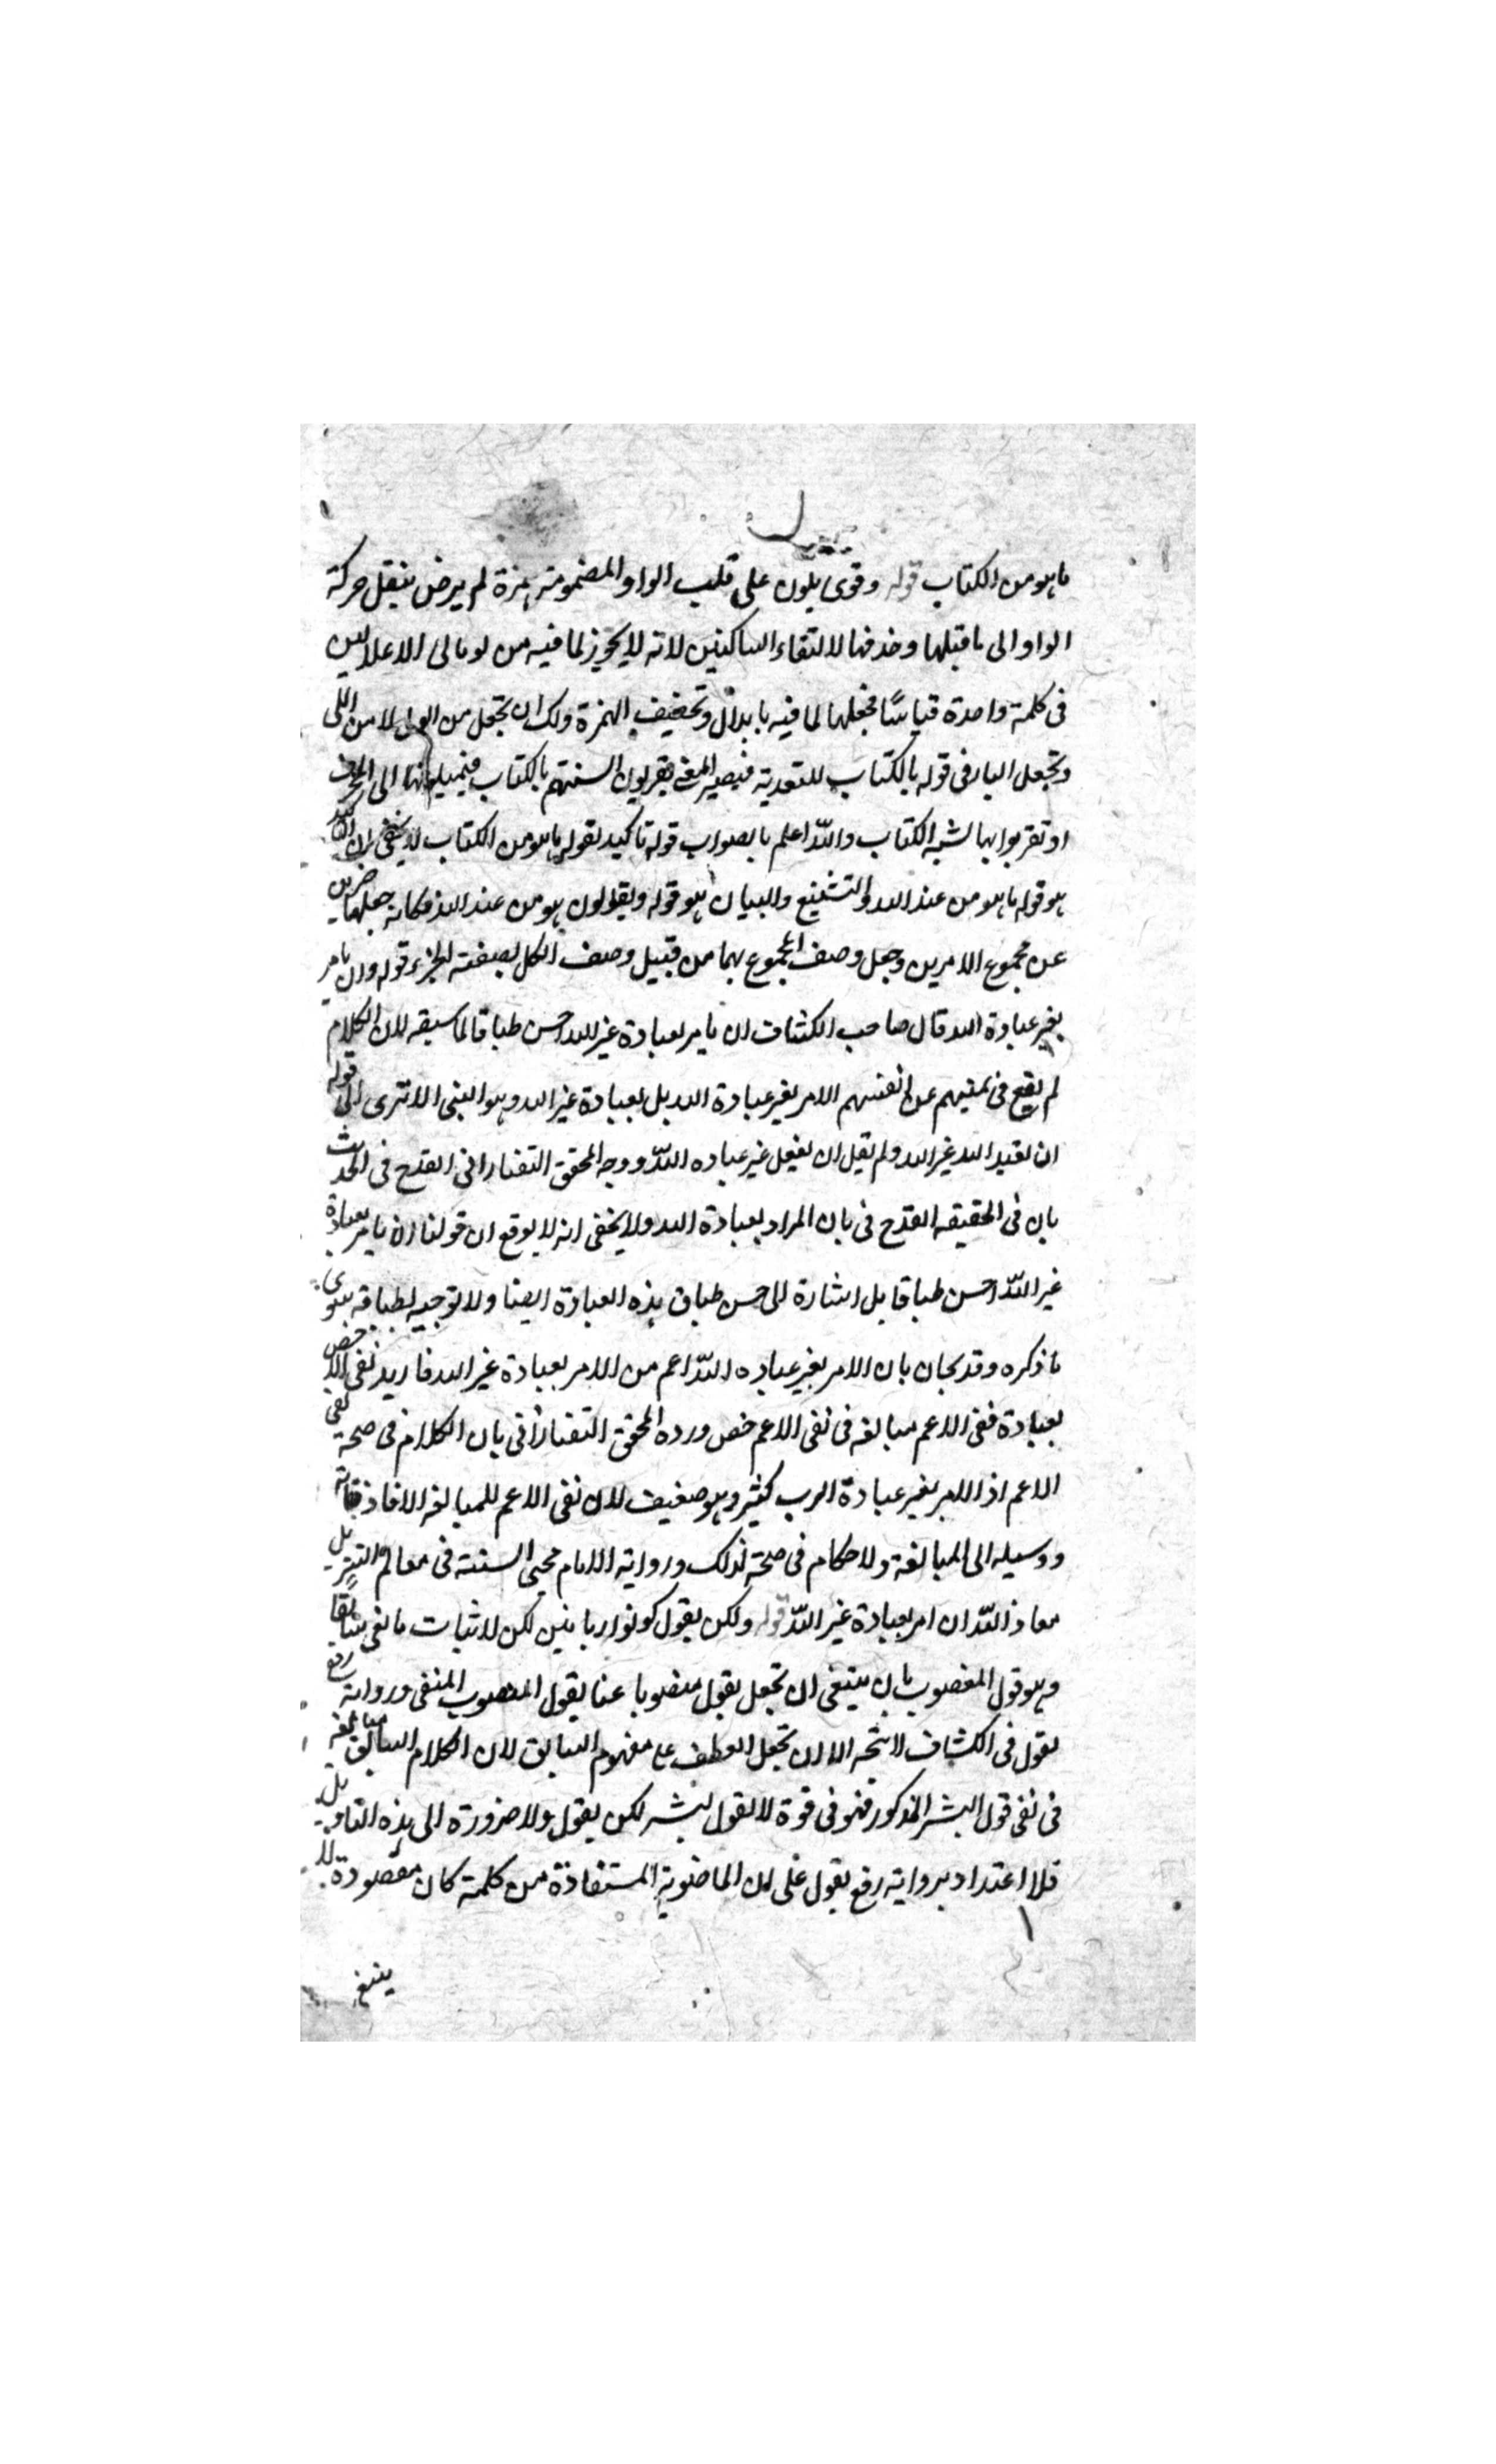 ما هو من الكتاب قوله وقوى يلون على قلب الواو المضمومة همزة لم يرض بنقل حركة
الواو الى ما قبلها وحذفها لالتقاء الساكنين لانه لا يجوز لما فيه من توالى الاعلالين
فى كلمة واحدة قياسًا فجعلها لما فيه بابدال وتخفيف الهمزة ولك ان تجعل من الولى لا من اللى
وتجعل الباء فى قوله بالكتاب للتعدية فيصير المعنى يقربون السنتهم بالكتاب فيميلونها الى المحرف
او تقربوا بها لشبه الكتاب والله اعلم بالصواب قوله تاكيد لقوله ما هو من الكتاب لا يخفى ان التاكيد
هو قوله ما هو من عند الله والتشنيع والبيان هو قوله ويقولون هو من عند الله فكانه جعلهما خبرين
عن مجموع الامرين وجعل وصف المجموع بهما من قبيل وصف الكل بصفة الجزء قوله وان يامر
بغير عبادة الله قال صاحب الكشاف ان يامر بعبادة غير الله احسن طباقا لما سبقه لان الكلام
لم يقع فى نفيهم عن انفسهم الامر بغير عبادة الله بل بعبادة غير الله وهو النبى الا ترى الى قوله
ان نعبد الله غير الله ولم تقل ان نفعل غير عباده الله ووجه المحقق التفتازانى القدح فى الحديث
بان فى الحقيقه القدح فى بان المراد بعبادة الله ولا يخفى انه لا يوقع ان قولنا ان يامر بعبادة
غير الله احسن طباقا بل اشارة الى حسن طباق هذه العبادة ايضا ولا توجيه لطباقه سوى
ما ذكره وقد يجاب بان الامر بغير عباده الله اعم من الامر بعبادة غير الله فاريد نفى الاخص
بعبادة فنفى الاعم مبالغه فى نفى الاعم خص ورده المحقق التفتازانى بان الكلام فى صحة نفى
الاعم اذ الامر بغير عبادة الرب كثير وهو ضعيف لان نفى الاعم للمبالغه الافاد
ووسيله الى المبالغة ولا حكام فى صحة ذلك ورواية الامام محيى السنة فى معالم التنزيل
معاذ الله ان امر بعبادة غير الله قوله ولكن يقول كونوا ربانيين لكن لاثبات ما نفى سابقًا
وهو قول المنصوب بان ينبغى ان تجعل يقول منصوبا عنا يقول المنصوب المنفى ورواية رفع
يقول فى الكشاف لا يتجه الا ان تجعل العطف على مفهوم السابق لان الكلام السابق مبالغه
فى نفى قول البشر المذكور فهو فى قوة لا يقول بشر لكن يقول ولا ضرورة الى هذه التاويل
فلا اعتداد برواية رفع يقول على ان الماضوية المستفادة من كلمة كان مقصودة
ينبغى